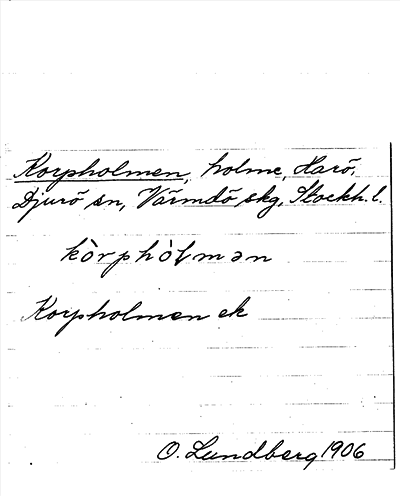 Korpholmen, holme, Harö,
Djurö sn, Värmdö skg, Stockh. l.
kòrphòlmən
Korpholmen ek
O. Lundberg 1906